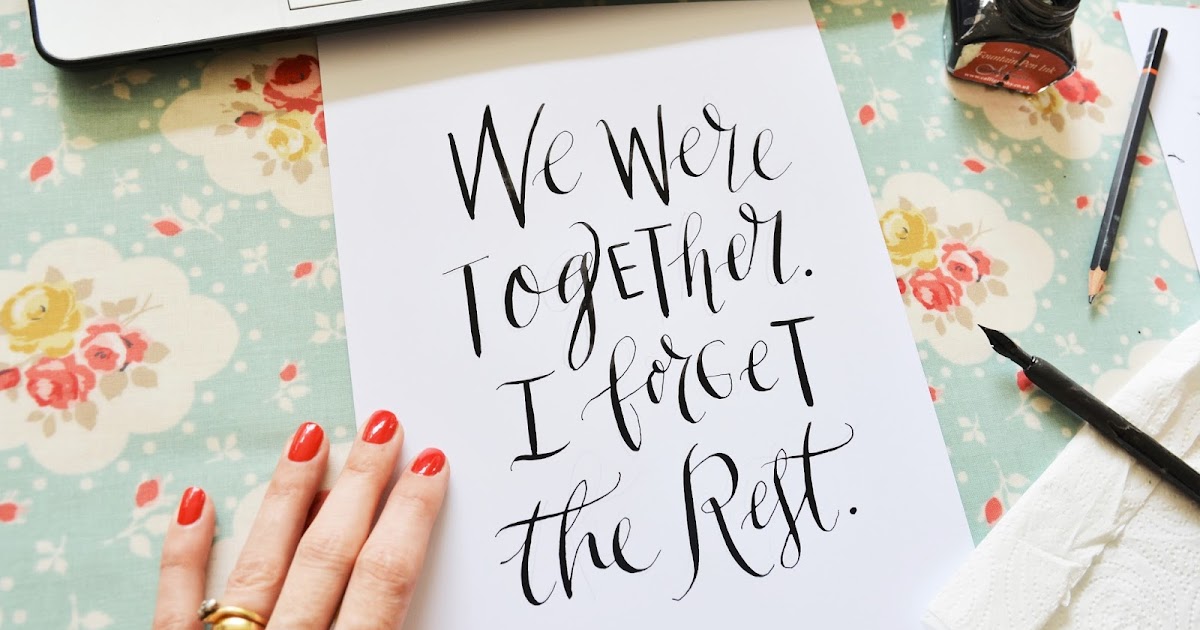 We were
Together.
I forget
the Rest.
Fountain Pen Ink